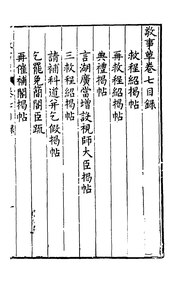 敬事草卷七目錄
救程紹揭帖
再救程紹揭帖
典禮揭帖
言湖廣當增設視師大臣揭帖
三救程紹揭帖
請補科道并乞假揭帖
乞罷免簡閣臣疏
再催補閣揭帖